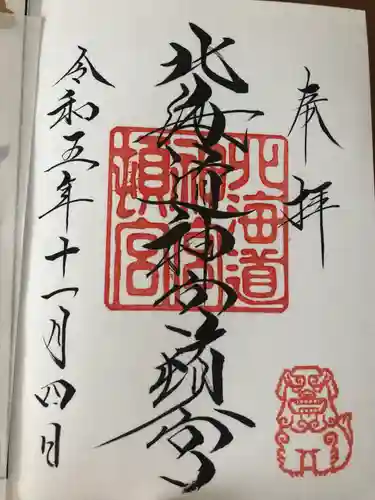 奉拝
北海道神宮頓宮
北海道神宮頓宮
令和五年十一月四日